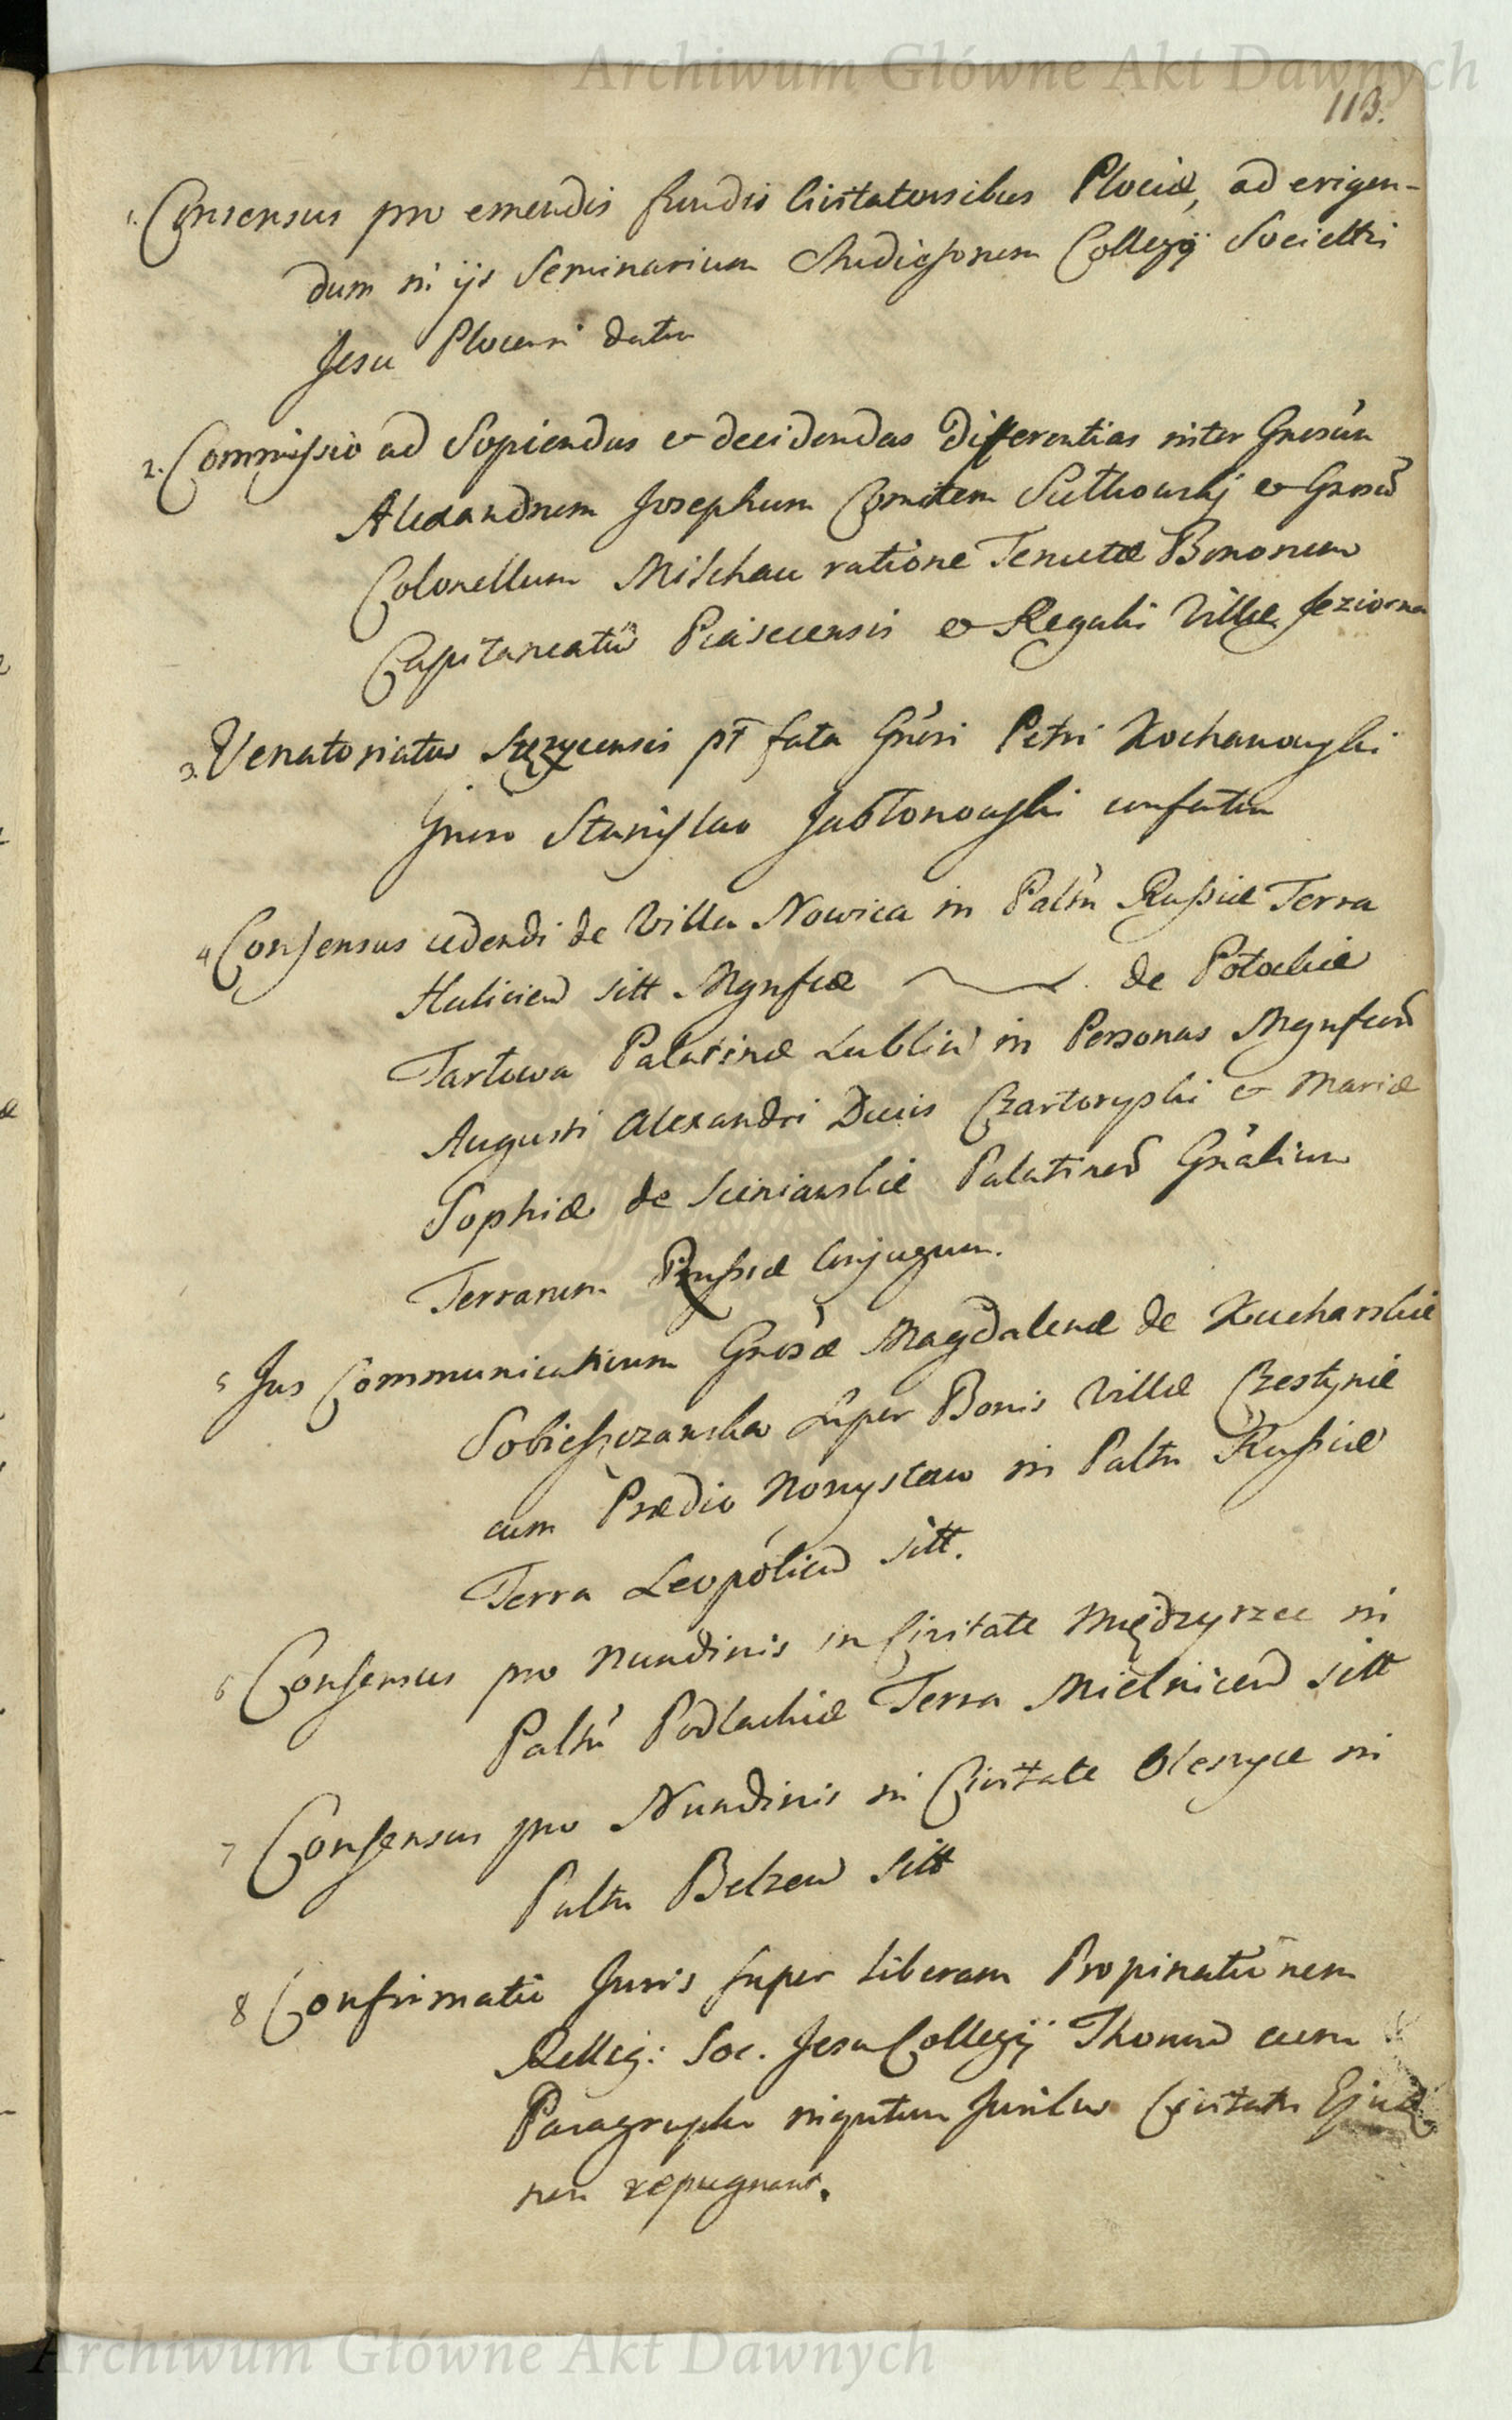 Archiwum Główne Akt Dawnych
113.
1. Consensus pro emendis fundis Civitatensibus Plociæ, ad erigen-
dum in ijs Seminarium Collegij Societti
Jesu Plocensi datur
2. Commissio ad Sopiendas et decidendas Differentias inter Gnrosum
Alexandrum Josephum Comitem Sulkowskj et Gnrosum
Colonellum Mischau ratione Tenutæ Bonorum
Capitaneatus Piasecensis et Regalis Villæ Jeziorna
3. Venatoriatus Stęzycensis pt fata Gnrsi Petri Kochanowski
Gnroso Stanislao Jabłonowski confertur
4 Consensus cedendi de Villa Nowica in Palttu Russiæ Terra
Halicien sitt Mgnfcæ de Potockie
Tarłowa Palatinæ Lublin in Personas Mgnfcorum
Augusti Alexandri Ducis Czartoryski et Mariæ
Sophiæ de Sieniawskie Palatinorum Gnralium
Terrarum Russiæ Conjugum.
5 Jus Communicativum Gnrosæ Magdalenæ de Kucharskie
Sobieszczanska super Bonis Villæ Czestynie
cum Prædio Nowystaw in Palttu Russiæ
Terra Leopolien sitt.
6 Consensus pro Nundinis in Civitate Międzyrzec in
Palttu Podlachiæ Terra Mielnicen sitt
7 Consensus pro Nundinis in Civitate Oleszyce in
Palttu Belzen sitt
8 Confirmatio Juris super liberam Propinationem
Rellig: Soc. Jesu Collegij Thorun cum
Paragrapho inquantum Juribus Civitatis Ejusd
non repugnant.
Archiwum Główne Akt Dawnych